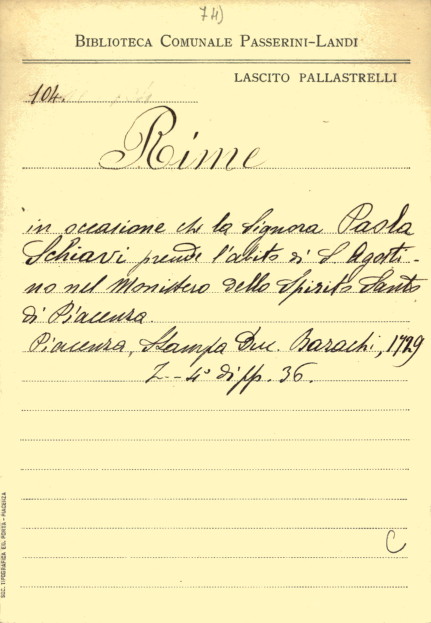 74)
BIBLIOTECA COMUNALE PASSERINI-LANDI
LASCITO PALLASTRELLI
104.
Rime
in occasione che la Signora Paola
Schiavi prende l'abito di S. Agosti-
no nel Monistero dello Spirito Santo
di Piacenza.
Piacenza, Stampa Duc. Barachi, 1729
4° di pp. 36.
C
SOC. TIPOGRAFICA EDL. PORTA - PIACENZA